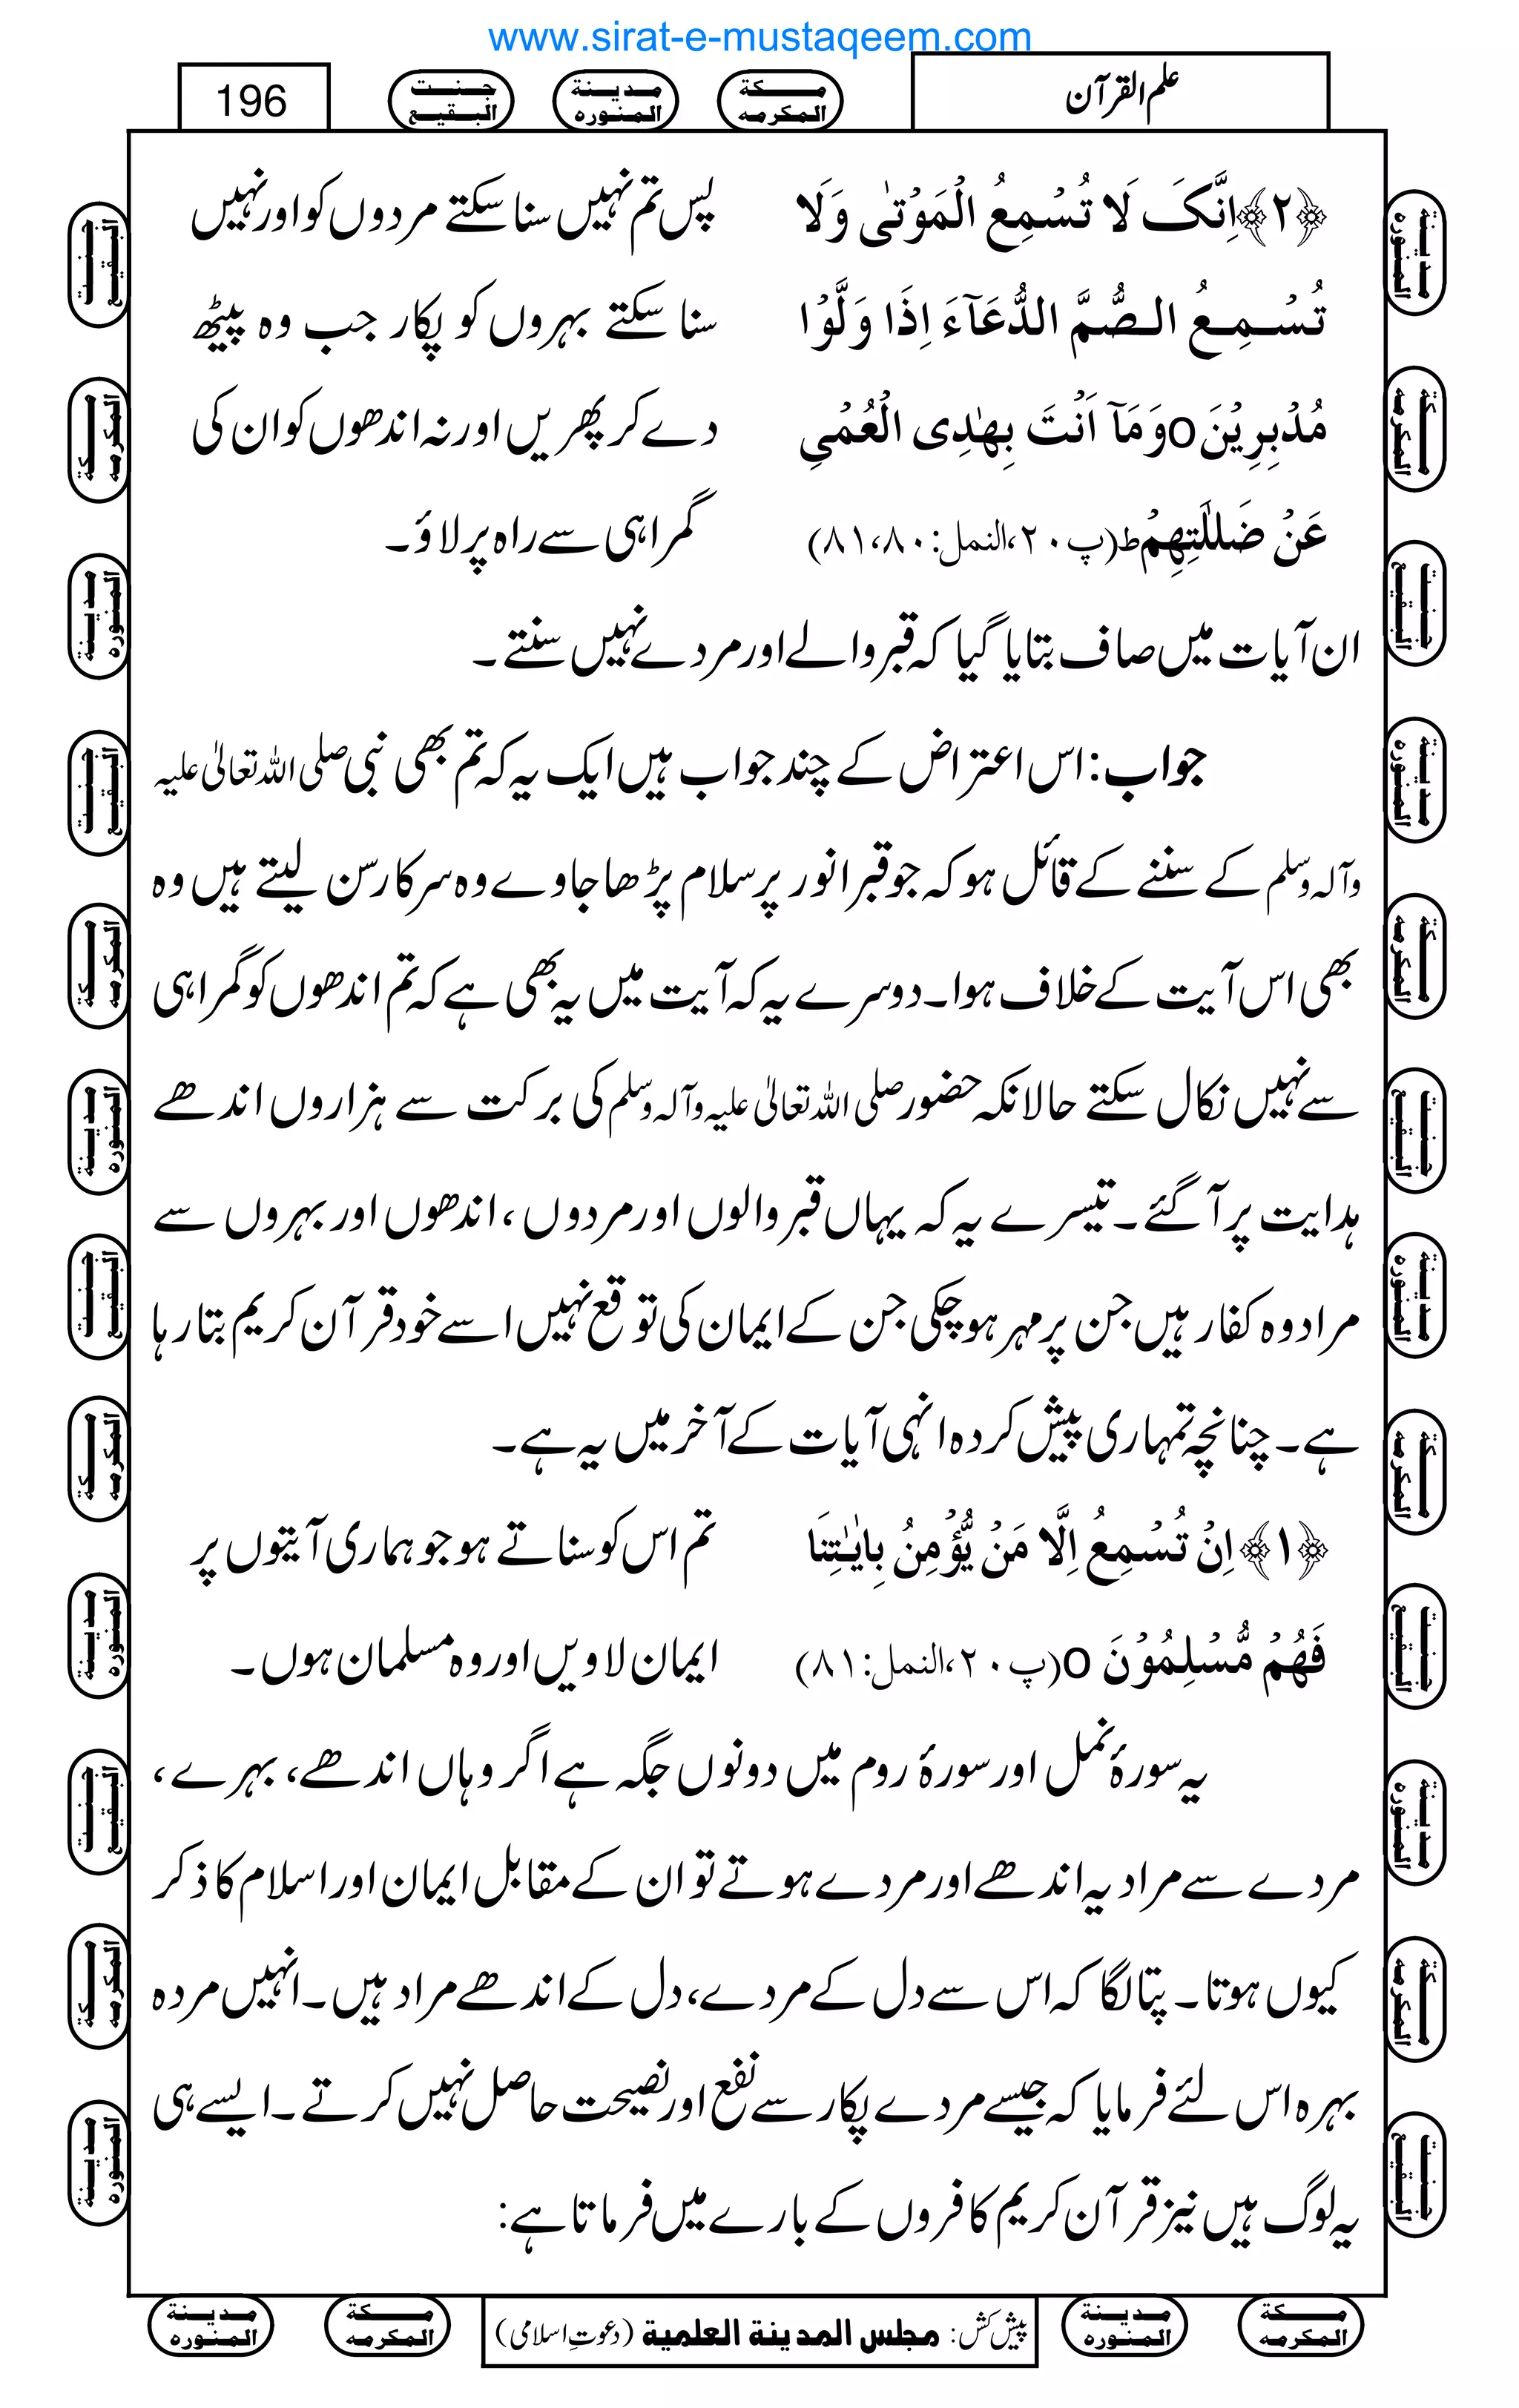 www.sirat-e-mustaqeem.com
علم القرآن
مكة المكرمه
مدينة المنوره
جنت البقيع
196
﴿۲﴾اِنَّكَ لَا تُسْمِعُ الْمَوْتٰى وَلَا
پس تم نہیں سنا سکتے مردوں کو اور نہیں
تُسْمِعُ الصُّمَّ الدُّعَآءَ اِذَا وَلَّوْا
سنا سکتے بہروں کو پکار جب وہ پیٹھ
مُدْبِرِيْنَo وَمَآ اَنْتَ بِهٰدِى الْعُمْىِ
دے کر پھریں اور نہ اندھوں کو ان کی
عَنْ ضَلٰلَتِهِمْط (پ۲۰،النمل:۸۰،۸۱)
گمراہی سے راہ پر لاؤ۔
ان آیات میں صاف بتایا گیا کہ قبر والے اور مردے نہیں سنتے۔
جواب: اس اعتراض کے چند جواب ہیں ایک یہ کہ تم بھی نبی صلی اللہ تعالیٰ علیہ
وآلہ وسلم کے سننے کے قائل ہو کہ جو قبر انور پر سلام پڑھا جاوے وہ سرکار سن لیتے ہیں وہ
بھی اس آیت کے خلاف ہوا۔ دوسرے یہ کہ آیت میں یہ بھی ہے کہ تم اندھوں کو گمراہی
سے نہیں نکال سکتے حالانکہ حضور صلی اللہ تعالیٰ علیہ وآلہ وسلم کی برکت سے ہزاروں اندھے
ہدایت پر آگئے۔ تیسرے یہ کہ یہاں قبر والوں اور مردوں ، اندھوں اور بہروں سے
مراد وہ کفار ہیں جن پر مہر ہوچکی جن کے ایمان کی توقع نہیں اسے خود قرآن کریم بتا رہا
ہے۔ چنانچہ تمہاری پیش کردہ انہی آیات کے آخر میں یہ ہے۔
﴿۱﴾ اِنْ تُسْمِعُ اِلَّا مَنْ يُّؤْمِنُ بِاٰيٰتِنَا
تم اس کو سناتے ہو جو ہماری آیتوں پر
فَهُمْ مُّسْلِمُوْنَ o (پ۲۰،النمل:۸۱)
ایمان لاویں اور وہ مسلمان ہوں۔
یہ سورۂ نمل اور سورۂ روم میں دونوں جگہ ہے اگر وہاں اندھے، بہرے،
مردے سے مراد یہ اندھے اور مردے ہوتے تو ان کے مقابل ایمان اور اسلام کا ذکر
کیوں ہوتا۔ پتا لگا کہ اس سے دل کے مردے، دل کے اندھے مراد ہیں۔ انہیں مردہ
بہرہ اس لئے فرمایا کہ جیسے مردے پکار سے نفع اور نصیحت حاصل نہیں کرتے۔ ایسے ہی
یہ لوگ ہیں نیز قرآن کریم کافروں کے بارے میں فرماتا ہے:
پیش کش: مجلس المدينة العلمية (دعوتِ اسلامی)